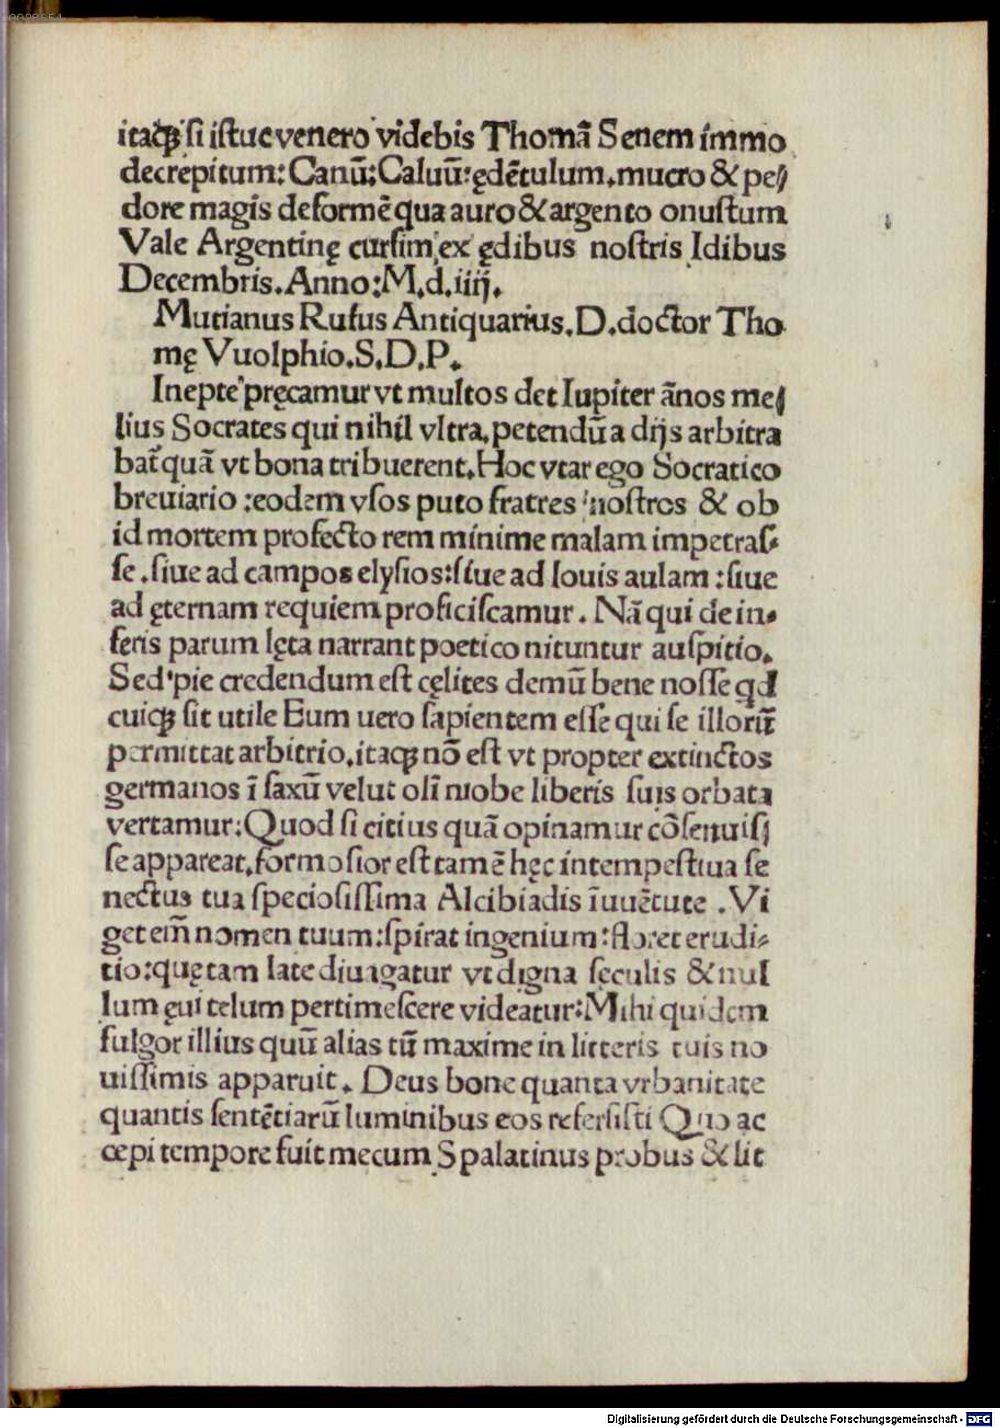 itaqꝫ si istuc venero videbis Thomã Senem immo
decrepitum: Canũ: Caluũ: ędẽtulum. mucro & pe⸗
dore magis deformẽ qua auro & argento onustum
Vale Argentinę cursim ex ędibus nostris Idibus
Decembris. Anno: M. d. iiij.
Mutianus Rufus Antiquarius. D. doctor Tho
mę Vuolphio. S. D. P.
Inepte pręcamur vt multos det Iupiter ãnos me⸗
lius Socrates qui nihil vltra. petendũ a dijs arbitra
bat̃ quã vt bona tribuerent. Hoc vtar ego Socratico
breuiario : eodem vsos puto fratres nostros & ob
id mortem profecto rem minime malam impetras⸗
se . siue ad campos elysios: siue ad Iouis aulam : siue
ad ęternam requiem proficiscamur . Nã qui de in⸗
feris parum lęta narrant poetico nituntur auspitio.
Sed pie credendum est cęlites demũ bene nosse qd
cuiqꝫ sit utile Eum uero sapientem esse qui se illorũ
permittat arbitrio. itaqꝫ nõ est vt propter extinctos
germanos ĩ saxũ velut olĩ niobe liberis suis orbata
vertamur: Quod si citius quã opinamur cõsenuis⸗
se appareat. formosior est tamẽ hęc intempestiua se
nectus tua speciosissima Alcibiadis ĩuuẽtute . Vi
get em̃ nomen tuum: spirat ingenium: floret erudi⸗
tio: quę tam late diuagatur vt digna seculis & nul
lum ęui telum pertimescere videatur: Mihi quidem
fulgor illius quũ alias tũ maxime in litteris tuis no
uissimis apparuit. Deus bone quanta vrbanitate
quantis sentẽtiarũ luminibus eos refersisti Quo ac
cepi tempore fuit mecum Spalatinus probus & lit
Digitalisierung gefördert durch die Deutsche Forschungsgemeinschaft - DFG